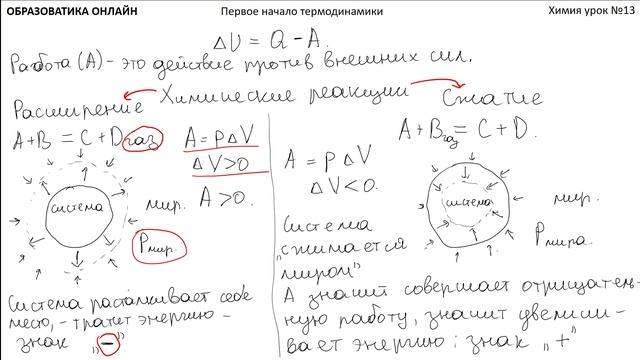 ОБРАЗОВАТИКА ОНЛАЙН
Первое начало термодинамики
Химия урок №13
ΔU = Q - A.
Работа (А) - это действие против внешних сил.
Химические реакции
Расширение
A + B = C + D газ
A = PΔV
ΔV > 0
A > 0.
система
мир.
Pмир.
Система расталкивает себе
место, - тратит энергию -
знак „-“
Сжатие
A + Bгаз = C + D.
A = PΔV
ΔV < 0.
система
мир.
Pмира.
Система
„сжимается
миром“
А значит совершает отрицатель-
ную работу, значит увеличи-
вает энергию: знак „+“